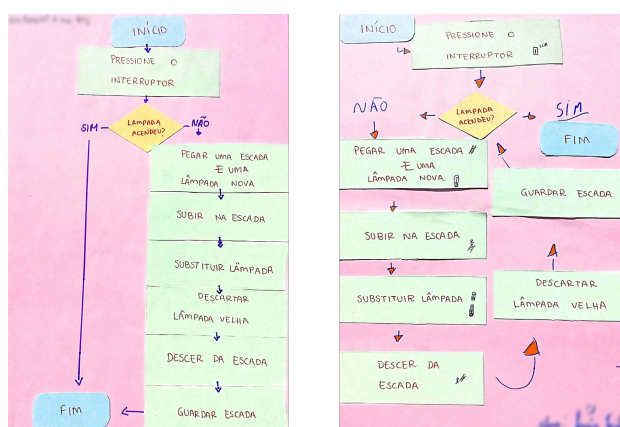 INÍCIO
PRESSIONE O
INTERRUPTOR
LAMPADA
ACENDEU?
SIM
NÃO
PEGAR UMA ESCADA
E UMA
LÂMPADA NOVA
SUBIR NA ESCADA
SUBSTITUIR LÂMPADA
DESCARTAR
LÂMPADA VELHA
DESCER DA ESCADA
GUARDAR ESCADA
FIM
INÍCIO
PRESSIONE O
INTERRUPTOR
LAMPADA
ACENDEU?
NÃO
SIM
FIM
PEGAR UMA ESCADA
E UMA
LÂMPADA NOVA
SUBIR NA ESCADA
SUBSTITUIR LÂMPADA
DESCER DA
ESCADA
DESCARTAR
LÂMPADA VELHA
GUARDAR ESCADA